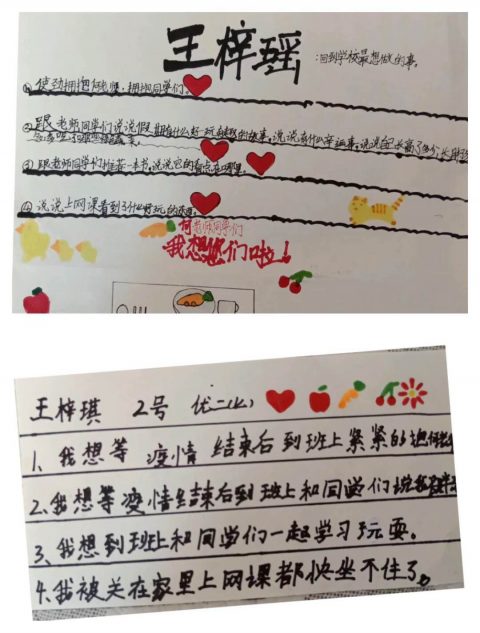 王梓瑶 :回到学校最想做的事。
① 使劲拥抱何老师,拥抱同学们。
② 跟老师同学们说说假期有什么好玩有趣的故事,说说有什么幸运事,说说自己长高了多少
③ 跟老师同学们推荐一本书,说说它的看点在哪里。
④ 说说上网课看到了什么好玩的
何老师同学们
我想您们啦!
王梓琪 2号 优二(七)
1、我想等疫情结束后到班上紧紧的抱何老
2、我想等疫情结束后到班上和同学们
3、我想到班上和同学们一起学习玩耍。
4、我被关在家里上网课都快坐不住了。